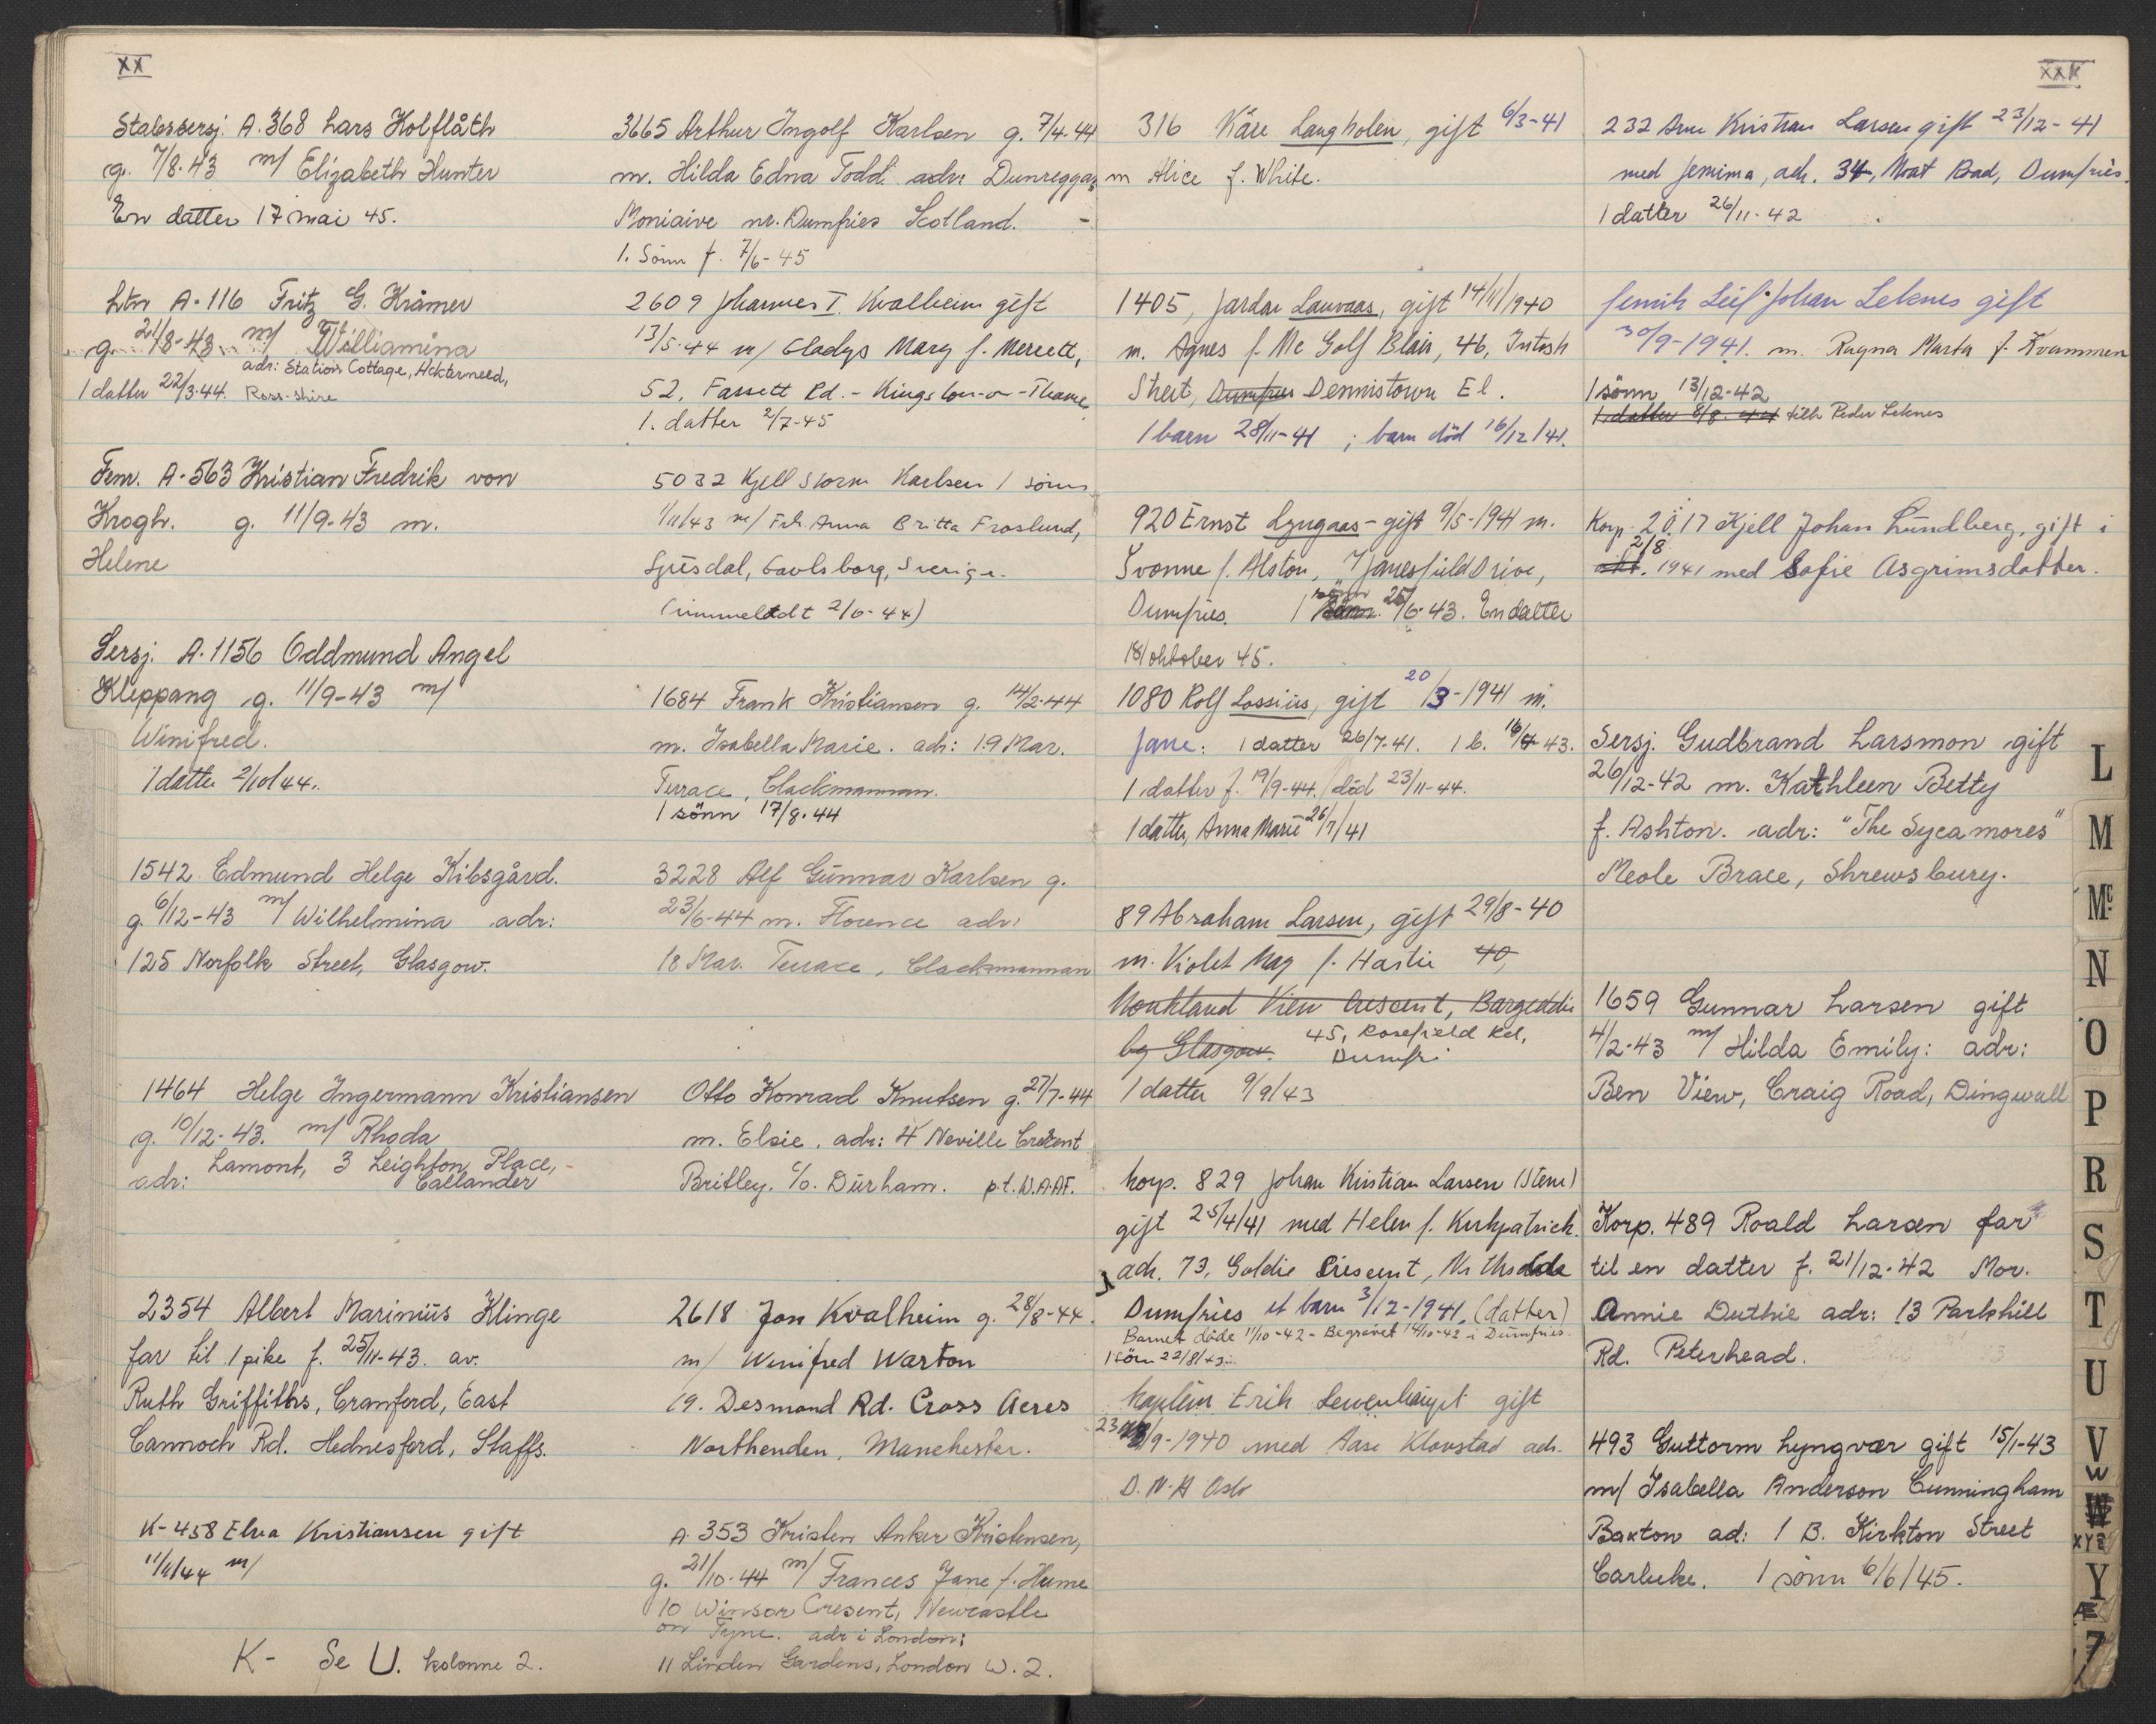 XX
Stabssersj. A.368 Lars Kolflåth
g. 7/8-43 m/ Elizabeth Hunter
En datter 17 mai 45.
Ltn A-116 Fritz G. Kråmer
g. 21/8-43 m/ Williamina
adr: Station Cottage, Ackterneed,
1 datter 22/3-44. Ross-shire
Fenr. A-563 Kristian Fredrik von
Krogh. g. 11/9-43 m.
Helene
Sersj. A.1156 Oddmund Angel
Kleppang g. 11/9-43 m/
Winifred.
1 datter 2/10/44.
1542 Edmund Helge Kibsgård.
g. 6/12-43 m/ Wilhelmina adr:
125 Norfolk Street, Glasgow.
1464 Helge Ingermann Kristiansen
g. 10/12-43. m/ Rhoda
Lamont, 3 Leighton Place,
adr: Callander
2354 Albert Marinius Klinge
far til 1 pike f. 25/11-43. av.
Ruth Griffiths, Cranford, East
Cannoch Rd. Hednesford, Staffs.
K-458 Elna Kristiansen gift
11/11/44 m/
K- Se U. kolonne 2.
3665 Arthur Ingolf Karlsen g. 7/4-44
m. Hilda Edna Todd adr: Dunreggan
Moniaive nr. Dumfries Scotland.
1. Sönn f. 7/6-45
2609 Johannes I. Kvalheim gift
13/5-44 m/ Gladys Mary f. Mercett,
52, Fassett Rd. - Kingston-o-Thame
1. datter 2/7-45
5032 Kjell Storm Karlsen 1 sönn
1/11/43 m/ Frk. Anna Britta Froslund,
Ljusdal, Gavlsborg, Sverige.
(innmeldt 2/6-44)
1684 Frank Kristiansen g. 14/2-44
m. Isabella Marie. adr: 19 Mar.
Terrace, Clackmannan.
1 sönn 17/8-44
3228 Alf Gunnar Karlsen g.
23/6-44 m. Florence adr:
18 Mar. Terrace, Clackmannan
Otto Konrad Knutsen g. 27/7-44
m. Elsie. adr: 4 Neville Cresent
Britley. C/o. Durham. p.t. W.A.AF.
2618 Jon Kvalheim g. 28/8-44.
m/ Winifred Warton
19. Desmond Rd. Cross Acres
Northenden, Manchester.
A-353 Kristen Anker Kristensen,
g. 21/10-44 m/ Frances Jane f. Hume
10 Winsor Cresent, Newcastle
on Tyne. adr i London:
11 Linden Gardens, London W.2.
316 Kåre Langholen, gift 6/3-41
m Alice f. White.
1405, Jardar Lauvaas, gift 14/11/1940
m. Agnes f. Mc Golf Blair, 46, Intosh
Street, Dumfries Dennistown El.
1 barn 28/11-41 ; barn död 16/12/41.
920 Ernst Lyngaas - gift 9/5-1941 m.
Yvonne f. Alston, 7 Janesfield Drive,
Dumfries. 1 sönn 25/6-43. En datter
18/oktober 45.
1080 Rolf Lossius, gift 20/3-1941 m.
Jane: 1 datter 26/7-41. 1 b. 16/4 43.
1 datter f. 19/9-44. död 23/11-44.
1 datter, Anna Marie 26/7/41
89 Abraham Larsen, gift 29/8-40
m. Violet May f. Hastie 40,
Monkland View Crescent, Bargeddie
by Glasgow. 45, Rosefield Rd,
Dumfri
1 datter 9/9/43
Korp. 829 Johan Kristian Larsen (Stene)
gift 25/4/41 med Helen f. Kirkpatrick.
adr. 73, Goldie Criscent,
Dumfries et barn 3/12-1941. (datter)
Barnet döde 11/10-42 - Begravet 14/10-42 i Dumfries.
1 sönn 22/8/43.
Kaptein Erik Lewenhaupt gift
23/9-1940 med Aase Klovstad adr.
D.N.A Oslo
XXI
232 Arne Kristian Larsen gift 23/12-41
med Jemima, adr. 34, Moat Road, Dumfries.
1 datter 26/11-42
Fenrik Leif Johan Leknes gift
30/9-1941. m. Ragna Marta f. Kvammen
1 sönn 13/12-42
1 datter 8/8-44 tilh Peder Leknes
Korp. 2017 Kjell Johan Lundberg, gift i
2/8
okt. 1941 med Sofie Asgrimsdatter.
Sersj. Gudbrand Larsmon gift
26/12-42 m. Kathleen Betty
f. Ashton. adr: "The Sycamores"
Meole Brace, Shrewsbury.
1659 Gunnar Larsen gift
4/2-43 m/ Hilda Emily: adr:
Ben View, Craig Road, Dingwall
Korp. 489 Roald Larsen far
til en datter f. 21/12-42 Mor.
Annie Duthie adr: 13 Parkhill
Rd. Peterhead.
493 Guttorm Lyngvær gift 15/1-43
m/ Isabella Anderson Cunningham
Baxton ad: 1 B. Kirkton Street
Carluke. 1 sönn 6/6/45.
L
M
Mc
N
O
P
R
S
T
U
V
W
W
XYZ
Y
Æ